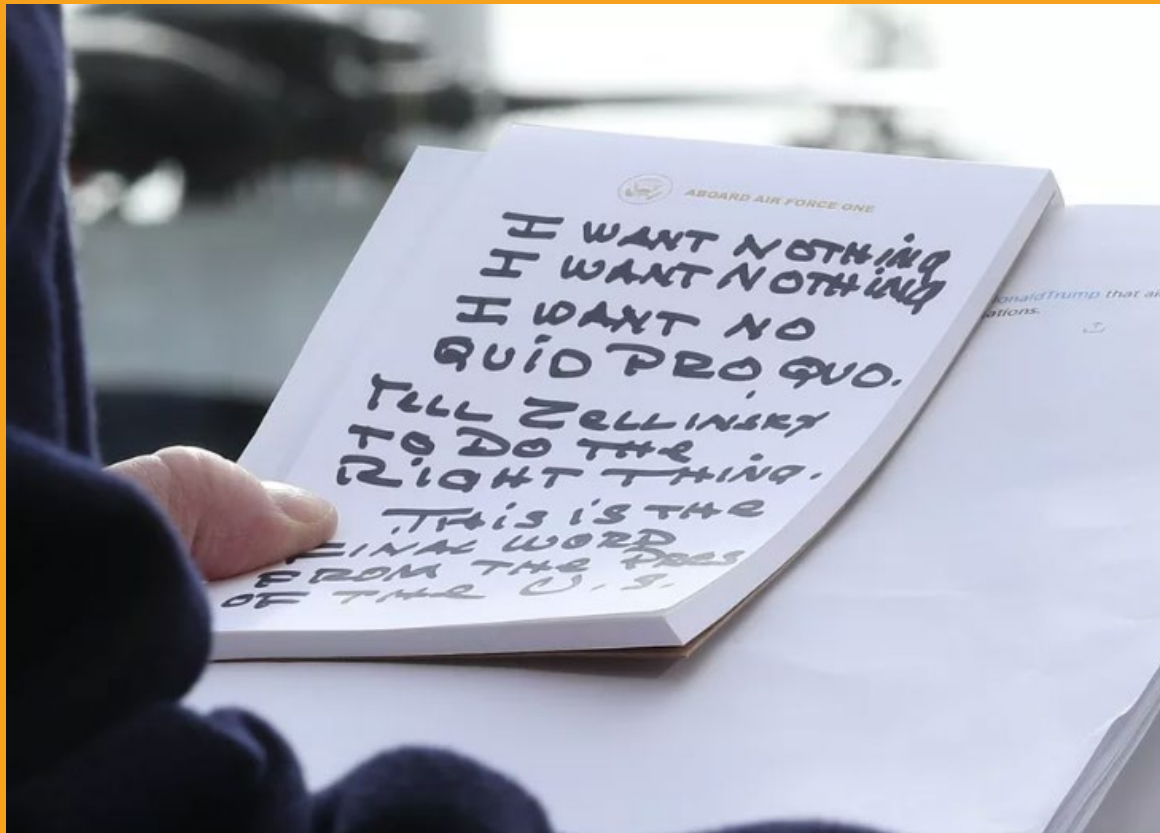 ABOARD AIR FORCE ONE
I WANT NOTHING
I WANT NOTHING
I WANT NO
QUID PRO QUO.
TELL ZELLINSKY
TO DO THE
RIGHT THING.
THIS IS THE
FINAL WORD
FROM THE PRES
OF THE U.S.
onaldTrump that ai
ations.